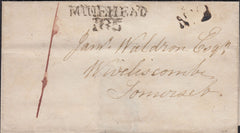 MINEHEAD
185
Jams. Waldron Esqr.
Wiveliscombe
Somerset